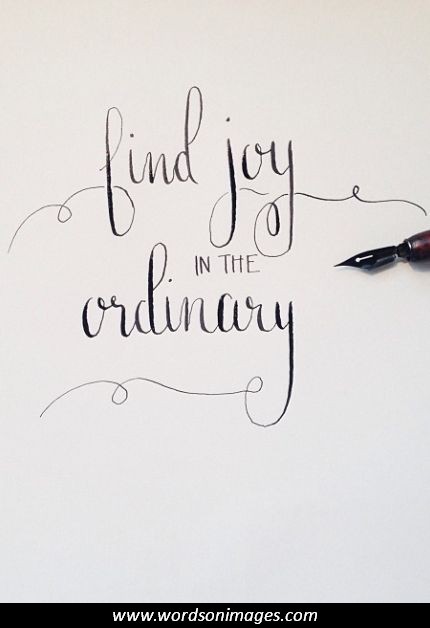 find joy
IN THE
ordinary
www.wordsonimages.com